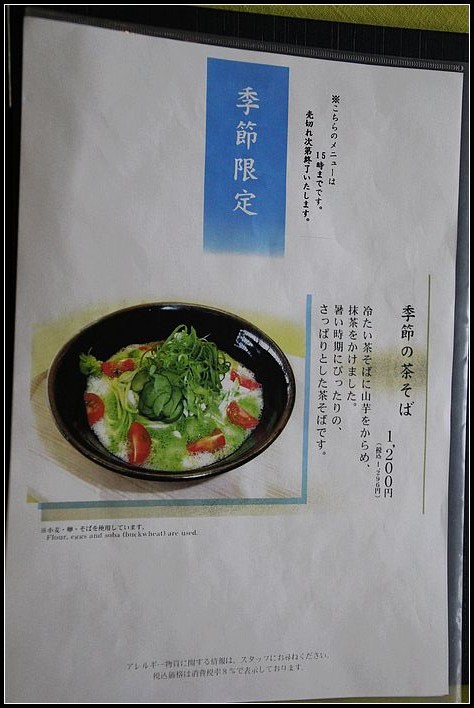 ※こちらのメニューは
15時までです。
売切れ次第終了いたします。
季節限定
季節の茶そば
1,200円
(税込1,296円)
冷たい茶そばに山芋をからめ、
抹茶をかけました。
暑い時期にぴったりの、
さっぱりとした茶そばです。
※小麦・卵・そばを使用しています。
Flour, eggs and soba (buckwheat) are used.
アレルギー物質に関する情報は、スタッフにお尋ねください。
税込価格は消費税率8%で表示しております。